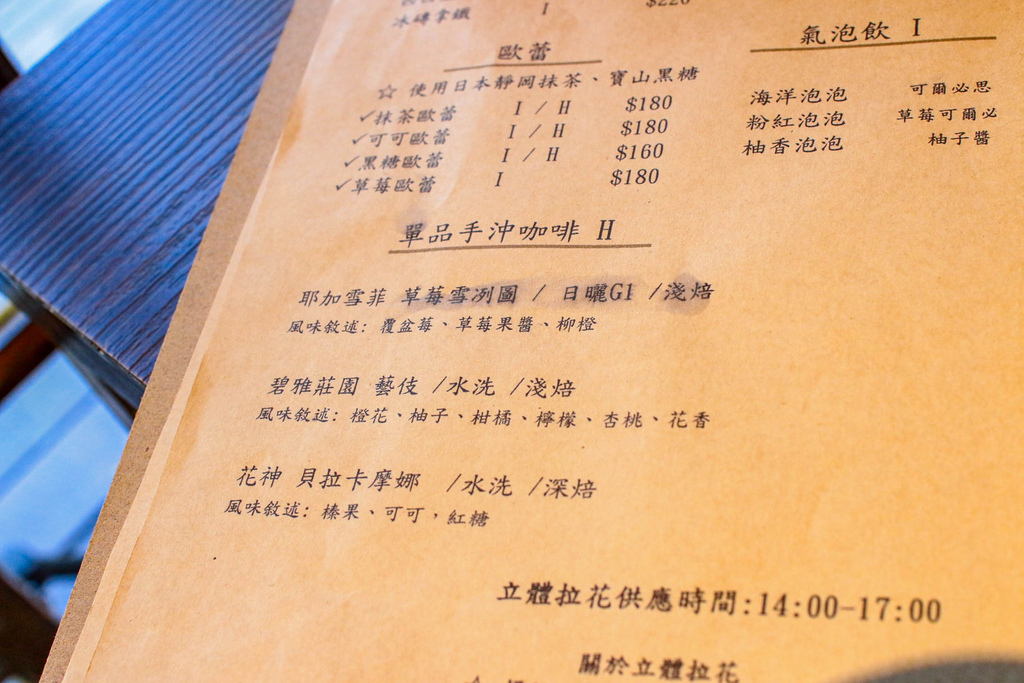 冰磚拿鐵 I $220
歐蕾
☆ 使用日本靜岡抹茶、寶山黑糖
✓抹茶歐蕾 I / H $180
✓可可歐蕾 I / H $180
✓黑糖歐蕾 I / H $160
✓草莓歐蕾 I $180
氣泡飲 I
海洋泡泡 可爾必思
粉紅泡泡 草莓可爾必
柚香泡泡 柚子醬
單品手沖咖啡 H
耶加雪菲 草莓雪冽圖 / 日曬G1 /淺焙
風味敘述: 覆盆莓、草莓果醬、柳橙
碧雅莊園 藝伎 /水洗 /淺焙
風味敘述: 橙花、柚子、柑橘、檸檬、杏桃、花香
花神 貝拉卡摩娜 /水洗 /深焙
風味敘述: 榛果、可可，紅糖
立體拉花供應時間:14:00-17:00
關於立體拉花